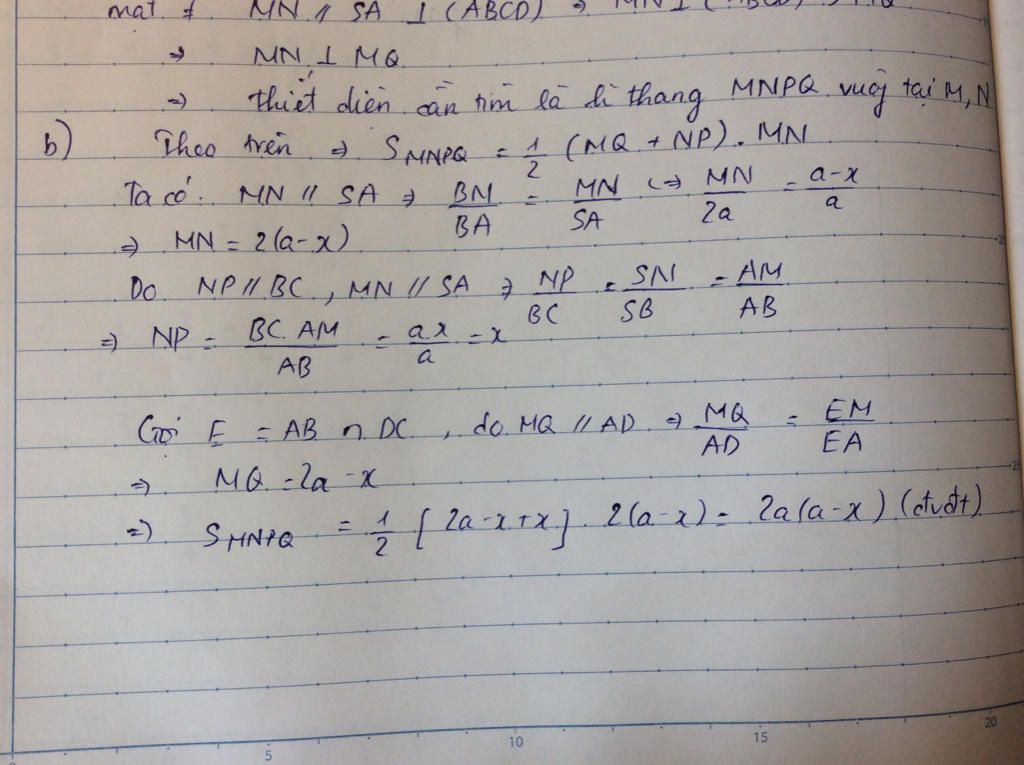 mặt ≠ MN // SA ⊥ (ABCD) ⇒ MN ⊥
⇒ MN ⊥ MQ
⇒ thiết diện cần tìm là hì thang MNPQ vuông tại M, N
b) Theo trên ⇒ S_MNPQ = 1/2 (MQ + NP). MN
Ta có: MN // SA ⇒ BM/BA = MN/SA ⇔ MN/2a = a-x/a
⇒ MN = 2(a-x)
Do NP // BC, MN // SA ⇒ NP/BC = SN/SB = AM/AB
⇒ NP = BC.AM/AB = ax/a = x
Gọi E = AB ∩ DC, do MQ // AD ⇒ MQ/AD = EM/EA
⇒ MQ = 2a - x
=> S_MNPQ = 1/2 [2a-x+x]. 2(a-x) = 2a(a-x) (đvdt)
5 10 15 20